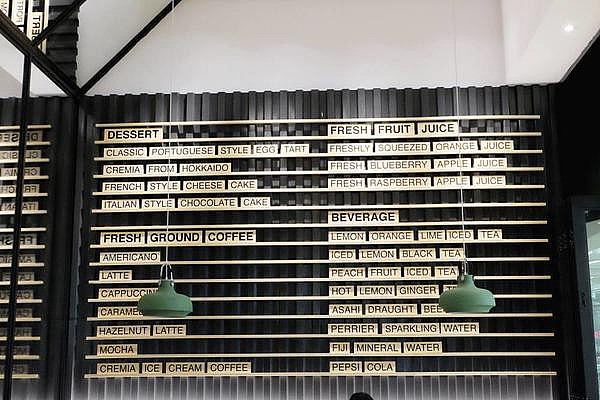 DESSERT
CLASSIC PORTUGUESE STYLE EGG TART
CREMIA FROM HOKKAIDO
FRENCH STYLE CHEESE CAKE
ITALIAN STYLE CHOCOLATE CAKE
FRESH GROUND COFFEE
AMERICANO
LATTE
CAPPUCCIN
CARAME
HAZELNUT LATTE
MOCHA
CREMIA ICE CREAM COFFEE
FRESH FRUIT JUICE
FRESHLY SQUEEZED ORANGE JUICE
FRESH BLUEBERRY APPLE JUICE
FRESH RASPBERRY APPLE JUICE
BEVERAGE
LEMON ORANGE LIME ICED TEA
ICED LEMON BLACK TEA
PEACH FRUIT ICED TEA
HOT LEMON GINGER
ASAHI DRAUGHT BEE
PERRIER SPARKLING WATER
FIJI MINERAL WATER
PEPSI COLA